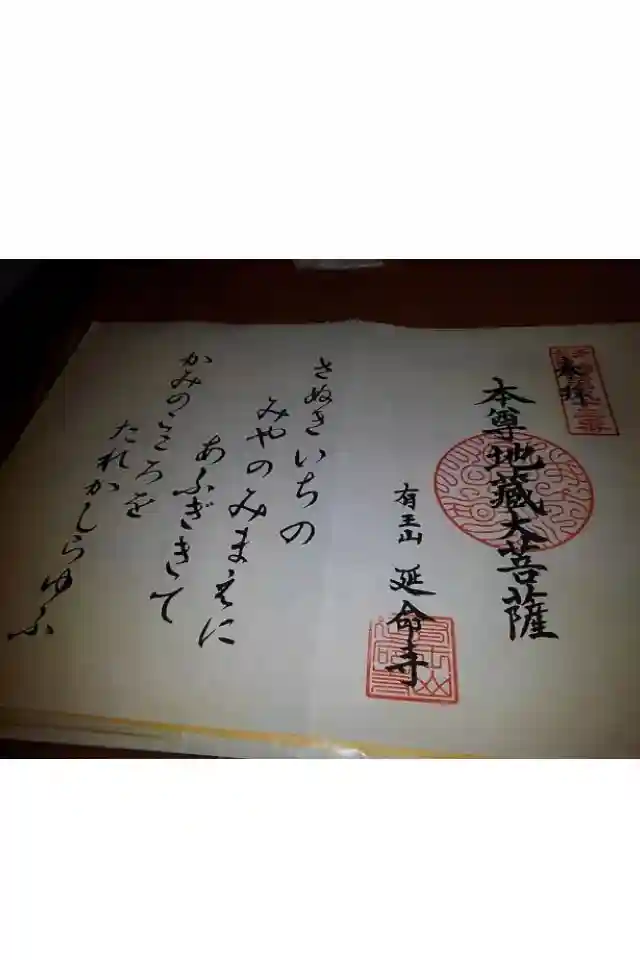 奉拝
本尊地蔵大菩薩
有王山 延命寺
さぬきいちの
みやのみまへに
あふぎきて
かみのこころを
たれかしらゆふ